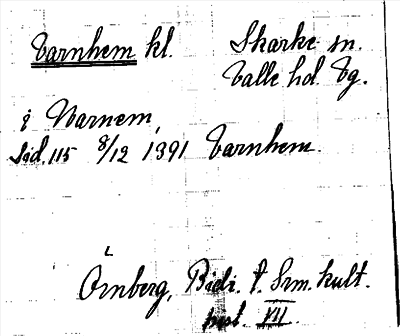 Varnhem kl. Skarke sn.
Valle hd. Vg.
i Warnem,
Sid. 115 8/12 1391 Varnhem.
Örnberg, Bidr. t. Srm. kult.
hist. VII.